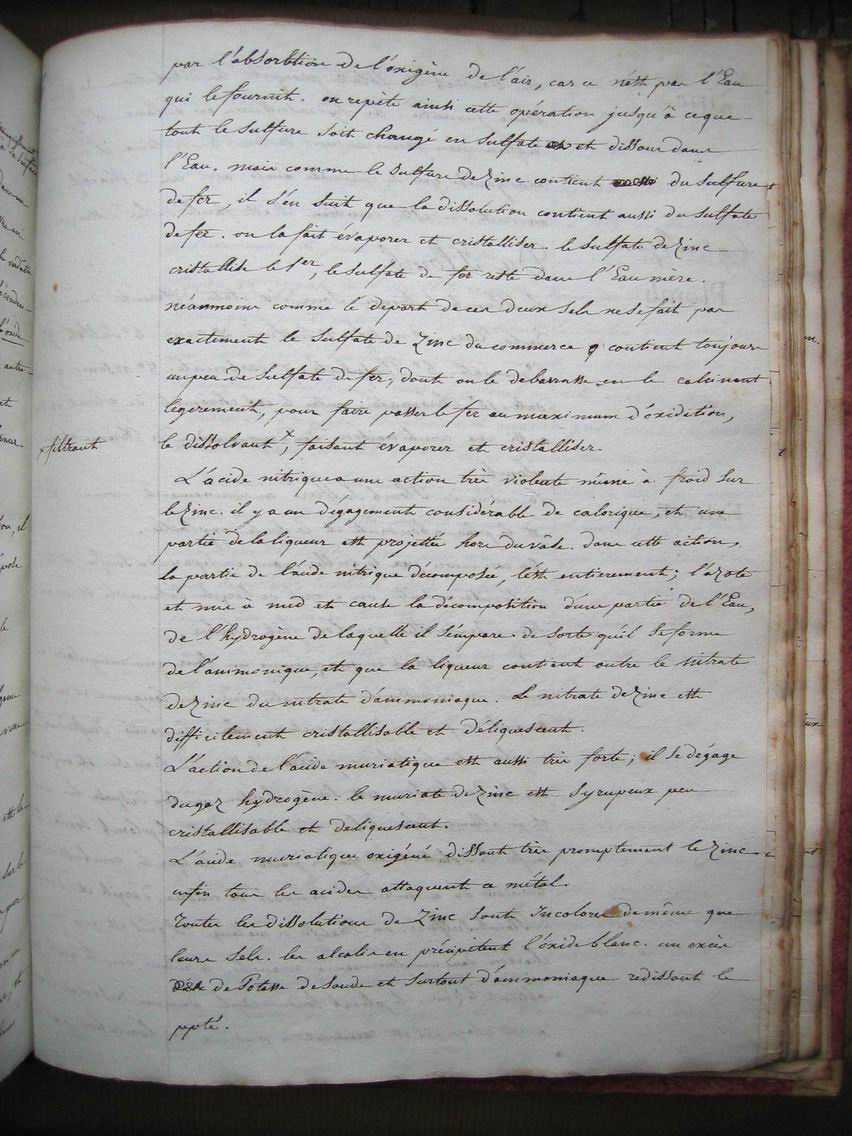 par l'absorbtion de l'oxigène de l'air, car ce n'est pas l'Eau
qui le fournit. on repète ainsi cette opération jusqu'à ceque
tout le sulfure soit changé en sulfate et dissous dans
l'Eau. mais comme le sulfure de Zinc contient du sulfure
de fer, il s'en suit que la dissolution contient aussi du sulfate
de fer. on la fait évaporer et cristalliser. le sulfate de Zinc
cristallise le 1er, le sulfate de fer reste dans l'Eau mère.
néanmoins comme le depart de ces deux sels ne se fait pas
exactement le sulfate de Zinc du commerce contient toujours
un peu de sulfate de fer, dont on le debarrasse en le calcinant
legerement, pour faire passer le fer au maximum d'oxidation,
le dissolvant x, faisant évaporer et cristalliser.
x filtrant
L'acide nitrique a une action très violente même à froid sur
le Zinc. il y a un dégagement considérable de calorique, et une
partie de la liqueur est projettée hors du vâse. dans cette action,
la partie de l'acide nitrique décomposée, l'est entierement; l'azote
et mis à nud et cause la décomposition d'une partie de l'Eau,
de l'hydrogène de laquelle il s'empare. de sorte qu'il se forme
de l'ammonique, et que la liqueur contient outre le nitrate
de Zinc du nitrate d'ammoniaque. Le nitrate de Zinc est
difficilement cristallisable et déliquescent.
L'action de l'acide muriatique est aussi très forte; il se dégage
du gaz hydrogène. le muriate de Zinc est syrupeux peu
cristallisable et deliquescent.
L'acide muriatique oxigéné dissout très promptement le Zinc.
enfin tous les acides attaquent ce métal.
Toutes les dissolutions de Zinc sont incolores de même que
leurs sels. les alcalis en précipitent l'oxide blanc. un excès
de Potasse de soude et surtout d'ammoniaque redissout le
ppté.